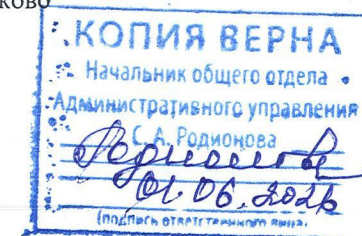 ково
КОПИЯ ВЕРНА
Начальник общего отдела
Административного управления
С. А. Родионова
Родионова
01.06.2026
(подпись ответственного лица)